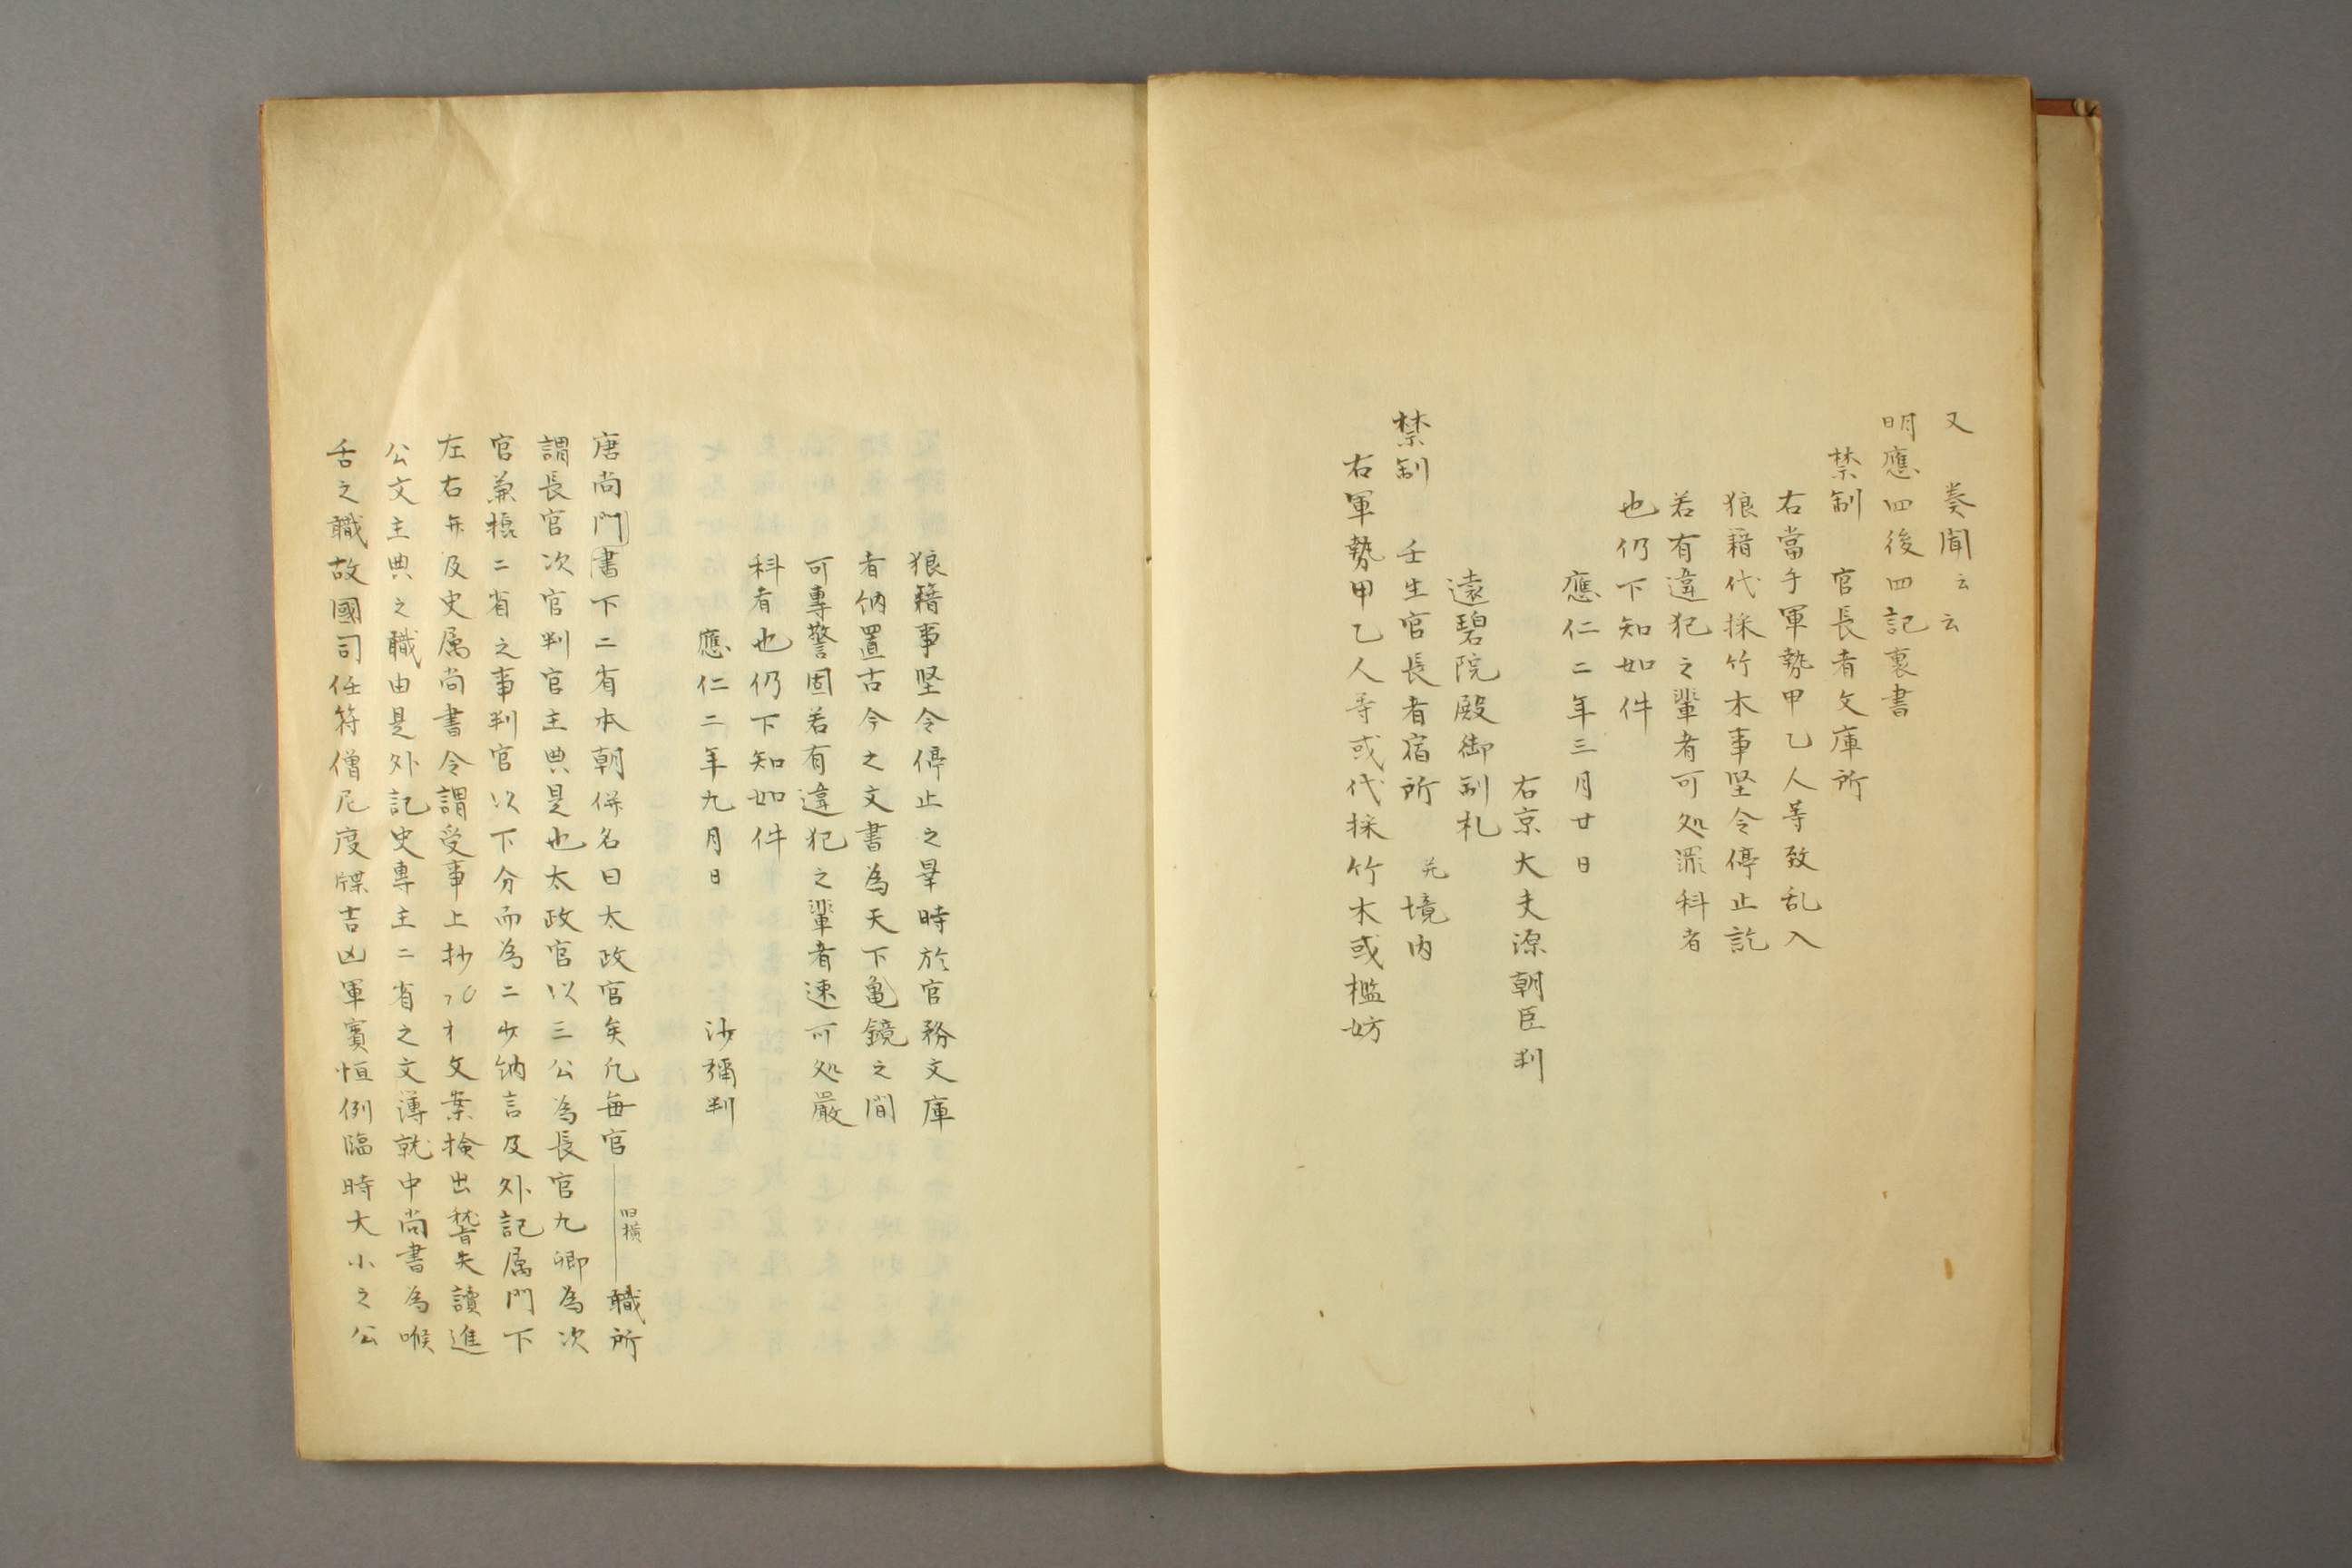 又奏聞云云
明應四後四記裏書
禁制　官長者文庫所
右當手軍勢甲乙人等致乱入
狼藉代採竹木事堅令停止訖
若有違犯之輩者可処罪科者
也仍下知如件
應仁二年三月廿日
右京大夫源朝臣判
遠碧院殿御制札
禁制　壬生官長者宿所　并境内
右軍勢甲乙人等或代採竹木或檻妨
狼籍事堅令停止之畢時於官務文庫
者納置古今之文書為天下亀鏡之間
可專警固若有違犯之輩者速可処嚴
科者也仍下知如件
應仁二年九月日　沙彌判
唐尚門書下二省本朝併名曰太政官矣凡毎官職所
旧横
謂長官次官判官主典是也太政官以三公為長官九卿為次
官兼揔二省之事判官以下分而為二少納言及外記属門下
左右弁及史属尚書令謂受事上抄文案検出稽失讀進
公文主典之職由是外記史專主二省之文薄就中尚書為喉
舌之職故國司任符僧尼度牒吉凶軍賓恒例臨時大小之公